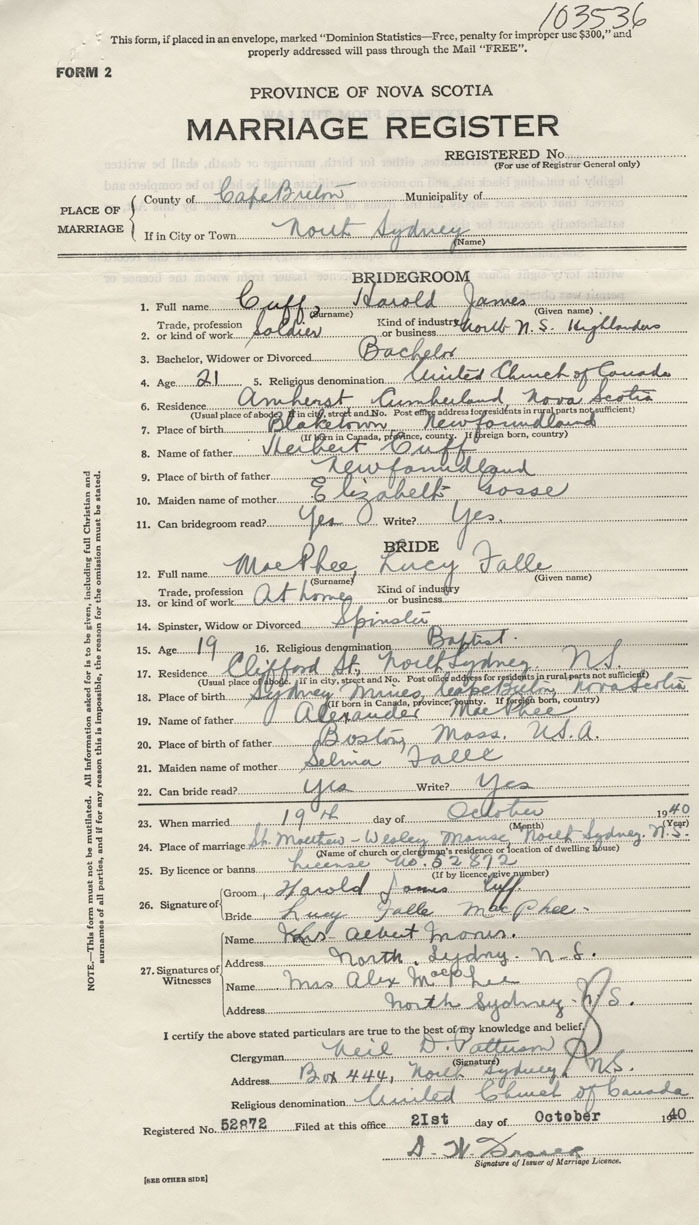 103536
This form, if placed in an envelope, marked "Dominion Statistics—Free, penalty for improper use $300," and
properly addressed will pass through the Mail "FREE".
FORM 2
PROVINCE OF NOVA SCOTIA
MARRIAGE REGISTER
REGISTERED No.
(For use of Registrar General only)
PLACE OF MARRIAGE
County of Cape Breton Municipality of
If in City or Town North Sydney
(Name)
BRIDEGROOM
1. Full name Cuff, Harold James
(Surname) (Given name)
2. Trade, profession or kind of work soldier Kind of industry or business North N.S. Highlanders
3. Bachelor, Widower or Divorced Bachelor
4. Age 21 5. Religious denomination United Church of Canada
6. Residence Amherst Cumberland, Nova Scotia
(Usual place of abode. If in city, street and No. Post office address for residents in rural parts not sufficient)
7. Place of birth Blaketown Newfoundland
(If born in Canada, province, county. If foreign born, country)
8. Name of father Herbert Cuff
9. Place of birth of father Newfoundland
10. Maiden name of mother Elizabeth Gosse
11. Can bridegroom read? Yes Write? Yes.
BRIDE
12. Full name MacPhee, Lucy Falle
(Surname) (Given name)
13. Trade, profession or kind of work At home Kind of industry or business
14. Spinster, Widow or Divorced Spinster
15. Age 19 16. Religious denomination Baptist.
17. Residence Clifford St, North Sydney N.S.
(Usual place of abode. If in city, street and No. Post office address for residents in rural parts not sufficient)
18. Place of birth Sydney Mines, Cape Breton, Nova Scotia
(If born in Canada, province, county. If foreign born, country)
19. Name of father Alexander MacPhee
20. Place of birth of father Boston, Mass. U.S.A.
21. Maiden name of mother Selina Falle
22. Can bride read? Yes Write? Yes
23. When married 19th day of October 1940
(Month) (Year)
24. Place of marriage St. Matthew-Wesley Manse, North Sydney. N.S.
(Name of church or clergyman's residence or location of dwelling house)
25. By licence or banns License No. 52872
(If by licence, give number)
26. Signature of
Groom Harold James Cuff
Bride Lucy Falle MacPhee
27. Signatures of Witnesses
Name Mrs Albert
Address North Sydney N-S.
Name Mrs Alex Macphee
Address North Sydney N.S.
I certify the above stated particulars are true to the best of my knowledge and belief.
Clergyman Neil D. Patterson
(Signature)
Address Box 444, North Sydney, N.S.
Religious denomination United Church of Canada
Registered No. 52872 Filed at this office 21st day of October 1940
D. W.
Signature of Issuer of Marriage Licence.
[SEE OTHER SIDE]
NOTE.—This form must not be mutilated. All Information asked for is to be given, including full Christian and
surnames of all parties, and if for any reason this is impossible, the reason for the omission must be stated.